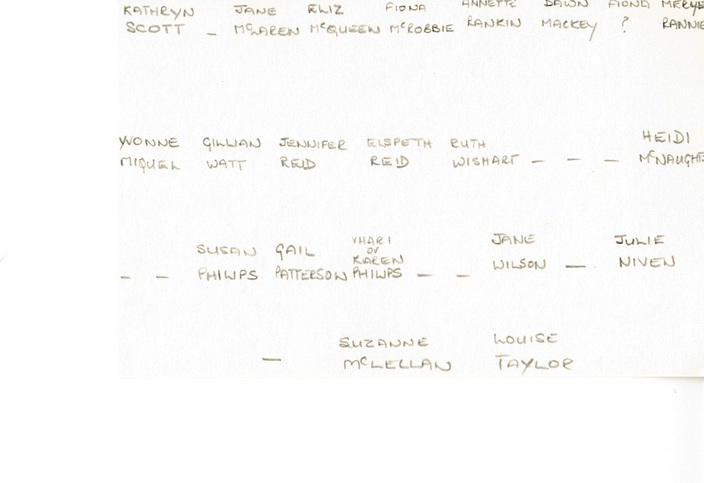 KATHRYN JANE ELIZ FIONA ANNETTE DAWN FIONA
SCOTT – McLAREN McQUEEN McROBBIE RANKIN MACKEY ? RANNIE
YVONNE GILLIAN JENNIFER ELSPETH RUTH HEIDI
MIQUEL WATT REID REID WISHART – – – McNAUGHT
SUSAN GAIL VHARI JANE JULIE
OR
KAREN
– – PHILIPS PATTERSON PHILIPS – – WILSON – NIVEN
SUZANNE LOUISE
– McLELLAN TAYLOR